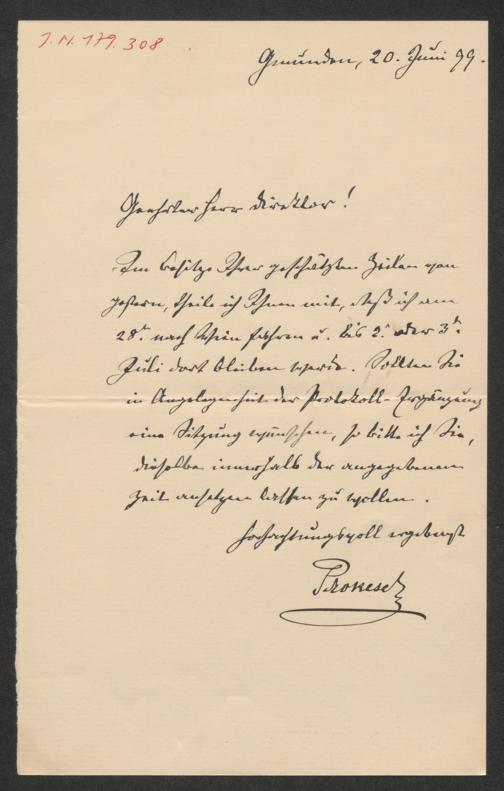 J. N. 179.308
Gmunden, 20. Juni 99.
Geehrter Herr Direktor!
Im Besitze Ihrer geschätzten Zeilen von
gestern, theile ich Ihnen mit, daß ich am
28t. nach Wien fahren u. bis 2. oder 3t.
Juli dort bleiben werde. Sollten Sie
in Angelegenheit der Protokoll-Ergänzung
eine Sitzung wünschen, so bitte ich Sie,
dieselbe innerhalb der angegebenen
Zeit ansetzen lassen zu wollen.
Hochachtungsvoll ergebenst
Prokesch